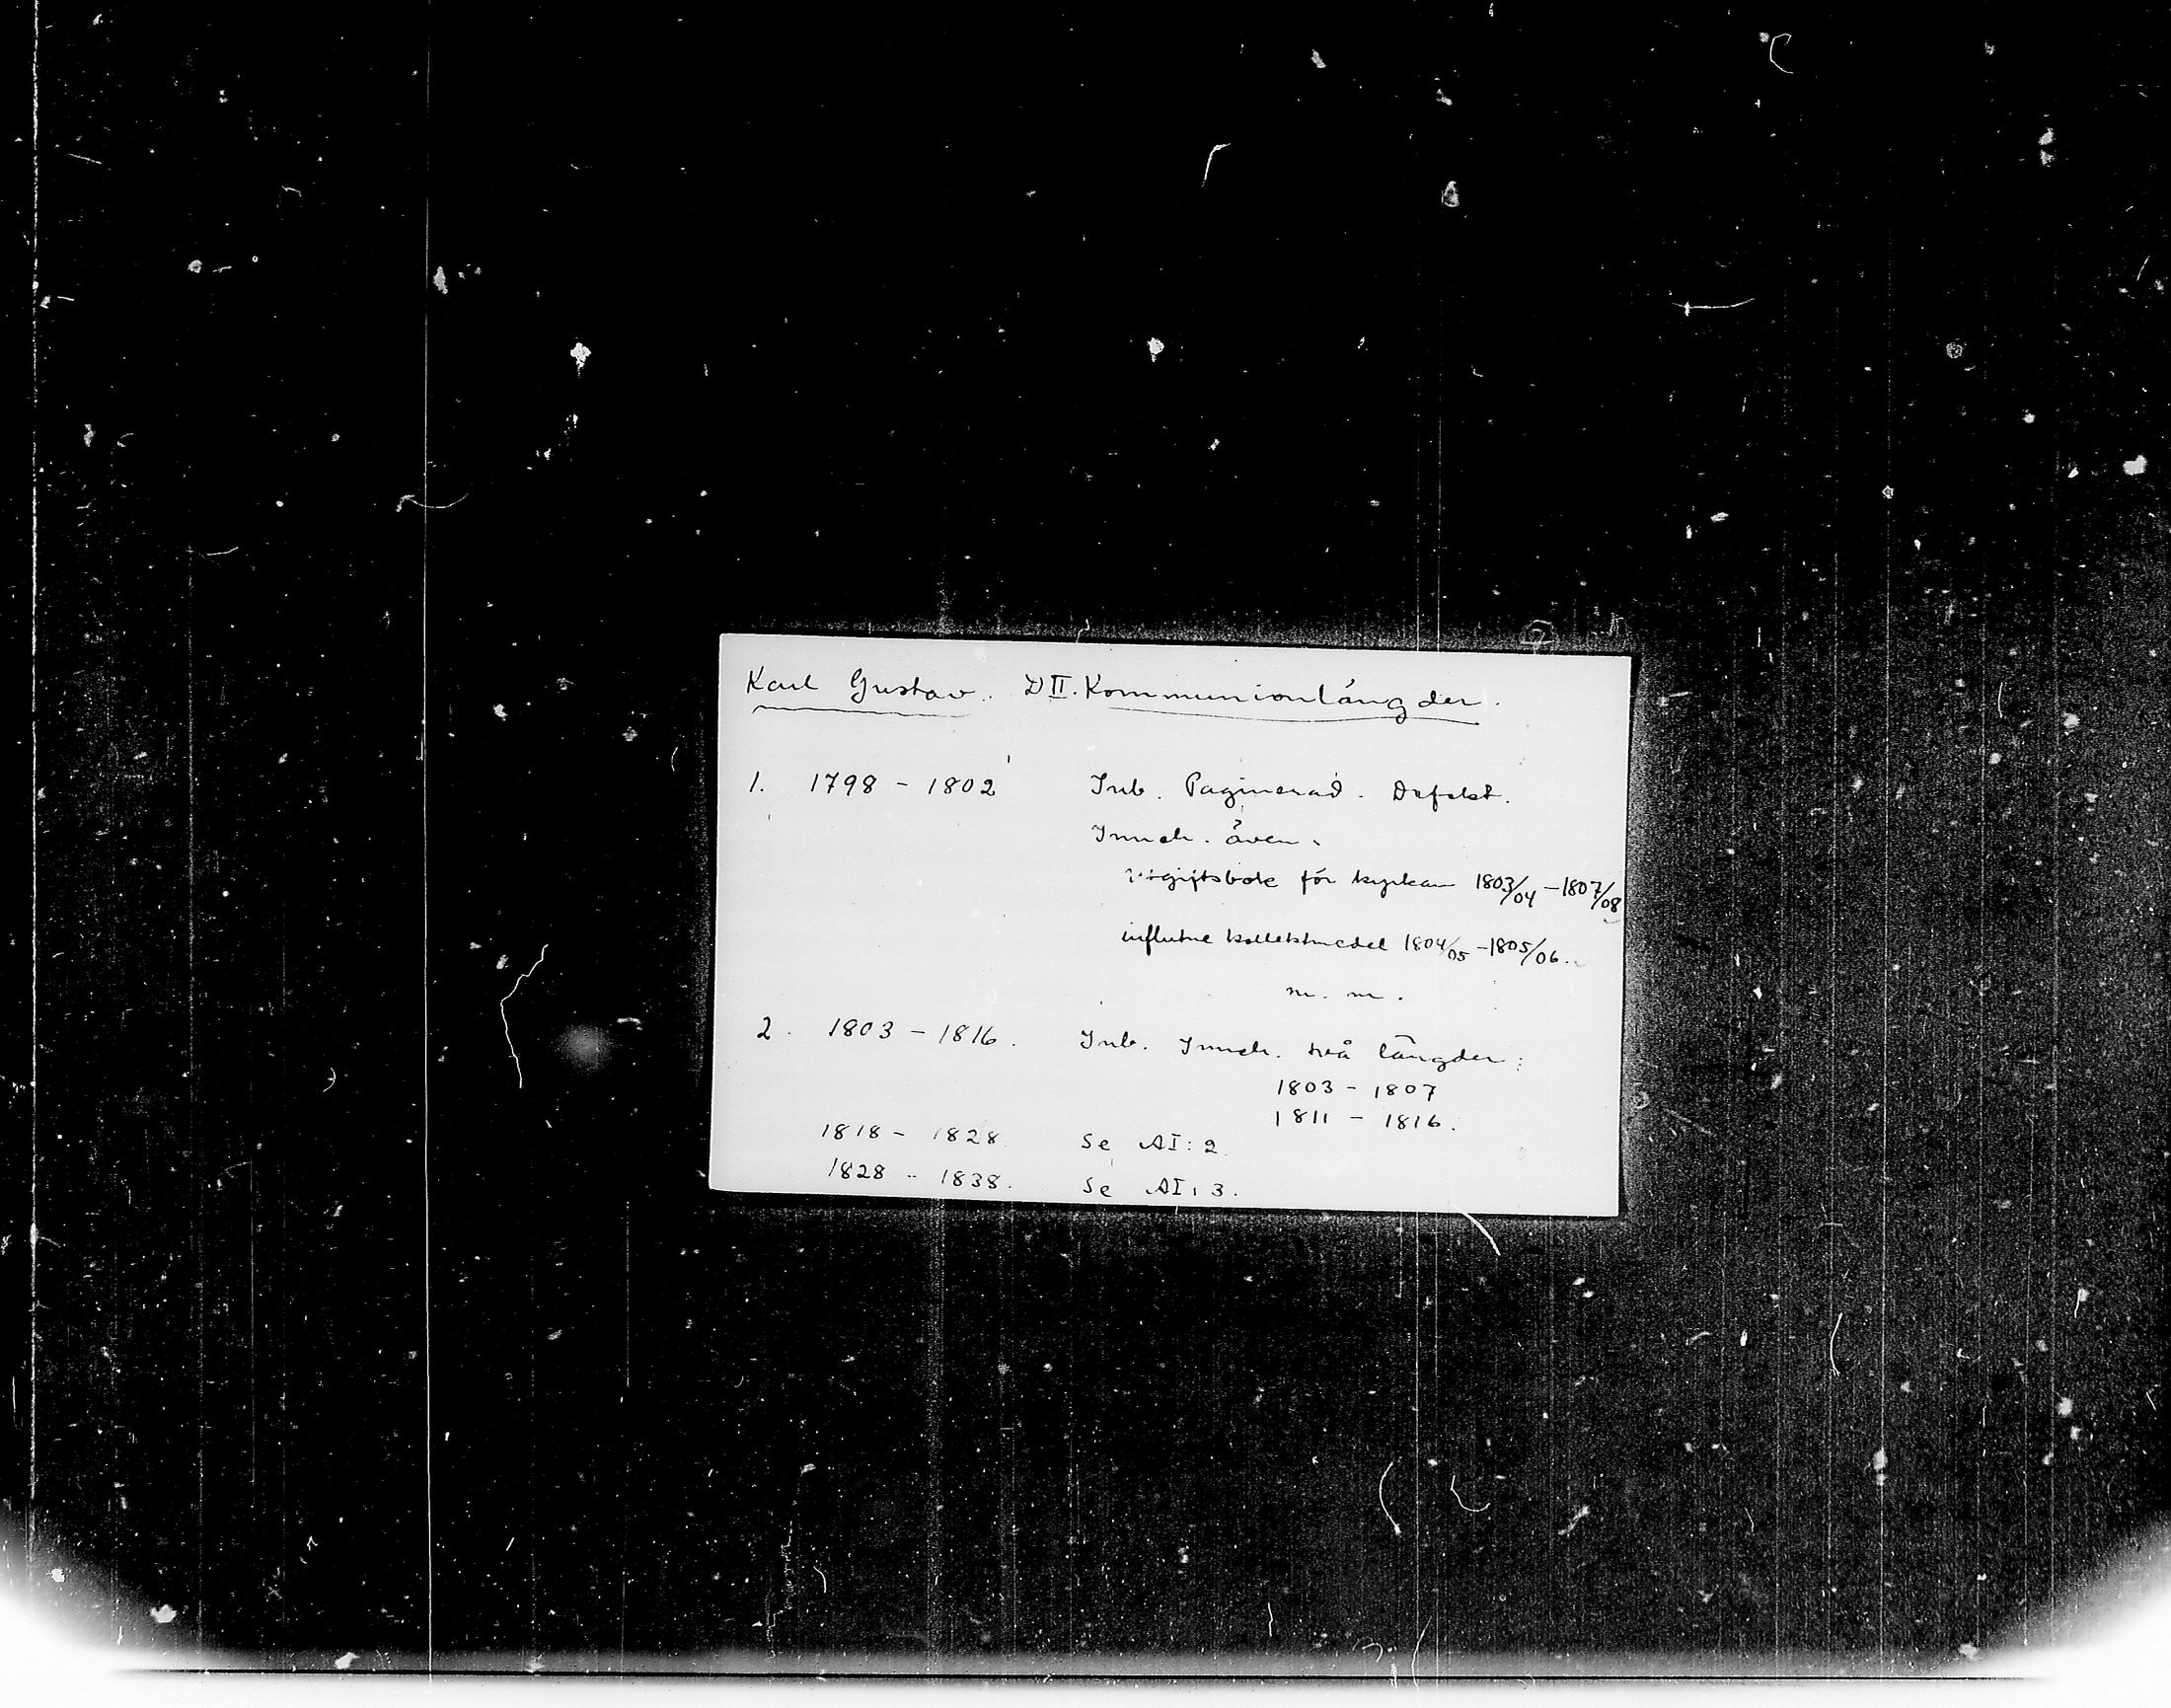 Karl Gustav. DII. Kommunionlängder.
1. 1798 - 1802 Inb. Paginerad. Defekt.
Inneh. även.
utgiftsbok för kyrkan 1803/04 - 1807/08
influtne kollektmedel 1804/05 - 1805/06.
m. m.
2. 1803 - 1816. Inb. Inneh. två längder:
1803 - 1807
1811 - 1816.
1818 - 1828. Se AI: 2
1828 - 1838. Se AI: 3.